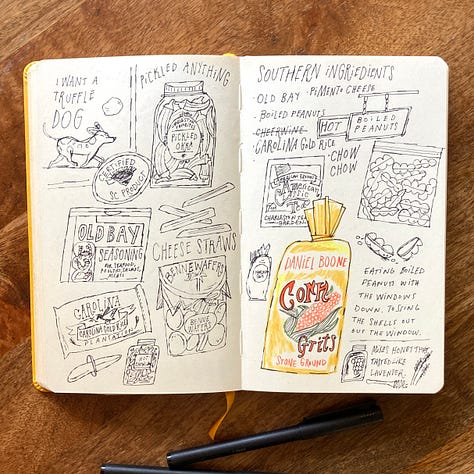 I WANT A
TRUFFLE
DOG
PiCKLED ANYTHiNG
PICKLED
OKRA
CERTIFIED
SC PRODUCT
OLD BAY
SEASONING
FOR SEAFOOD,
POULTRY, SALADS,
MEATS
CHEESE STRAWS
BENNE WAFERS
CAROLINA
CAROLINA GOLD RICE
PLANTATION
SOUTHERN iNGREDiENTS
· OLD BAY · PiMENTO CHEESE
· BOILED PEANUTS
· CHEERWINE
· CAROLINA GOLD RICE
HOT
BOILED
PEANUTS
· CHOW
CHOW
CHARLESTON TEA
GARDEN
DANIEL BOONE
CORN
Grits
STONE GROUND
EATING BOILED
PEANUTS WITH
THE WINDOWS
DOWN. TOSSING
THE SHELLS OUT
OUT THE WINDOW.
HONEY THAT
TASTED LIKE
LAVENDER